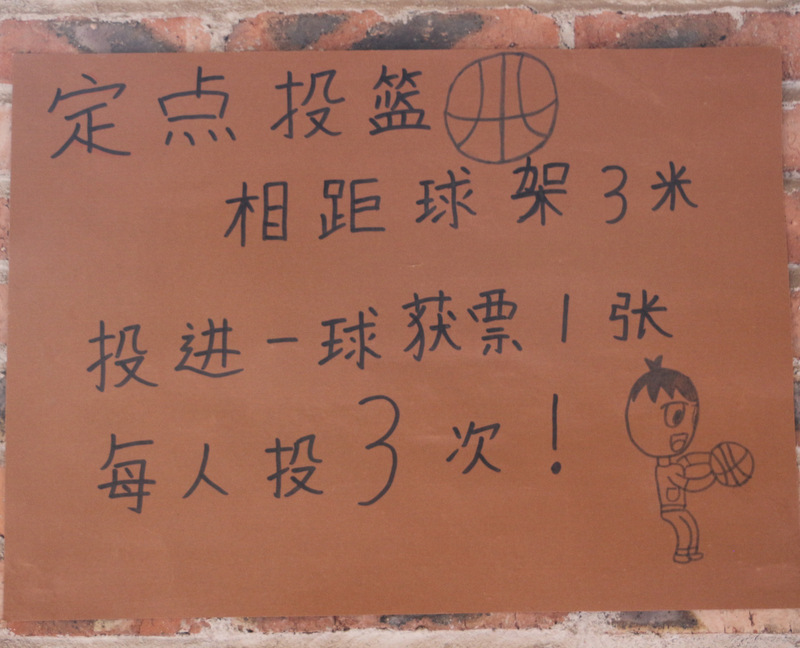 定点投篮
相距球架3米
投进一球获票1张
每人投3次！